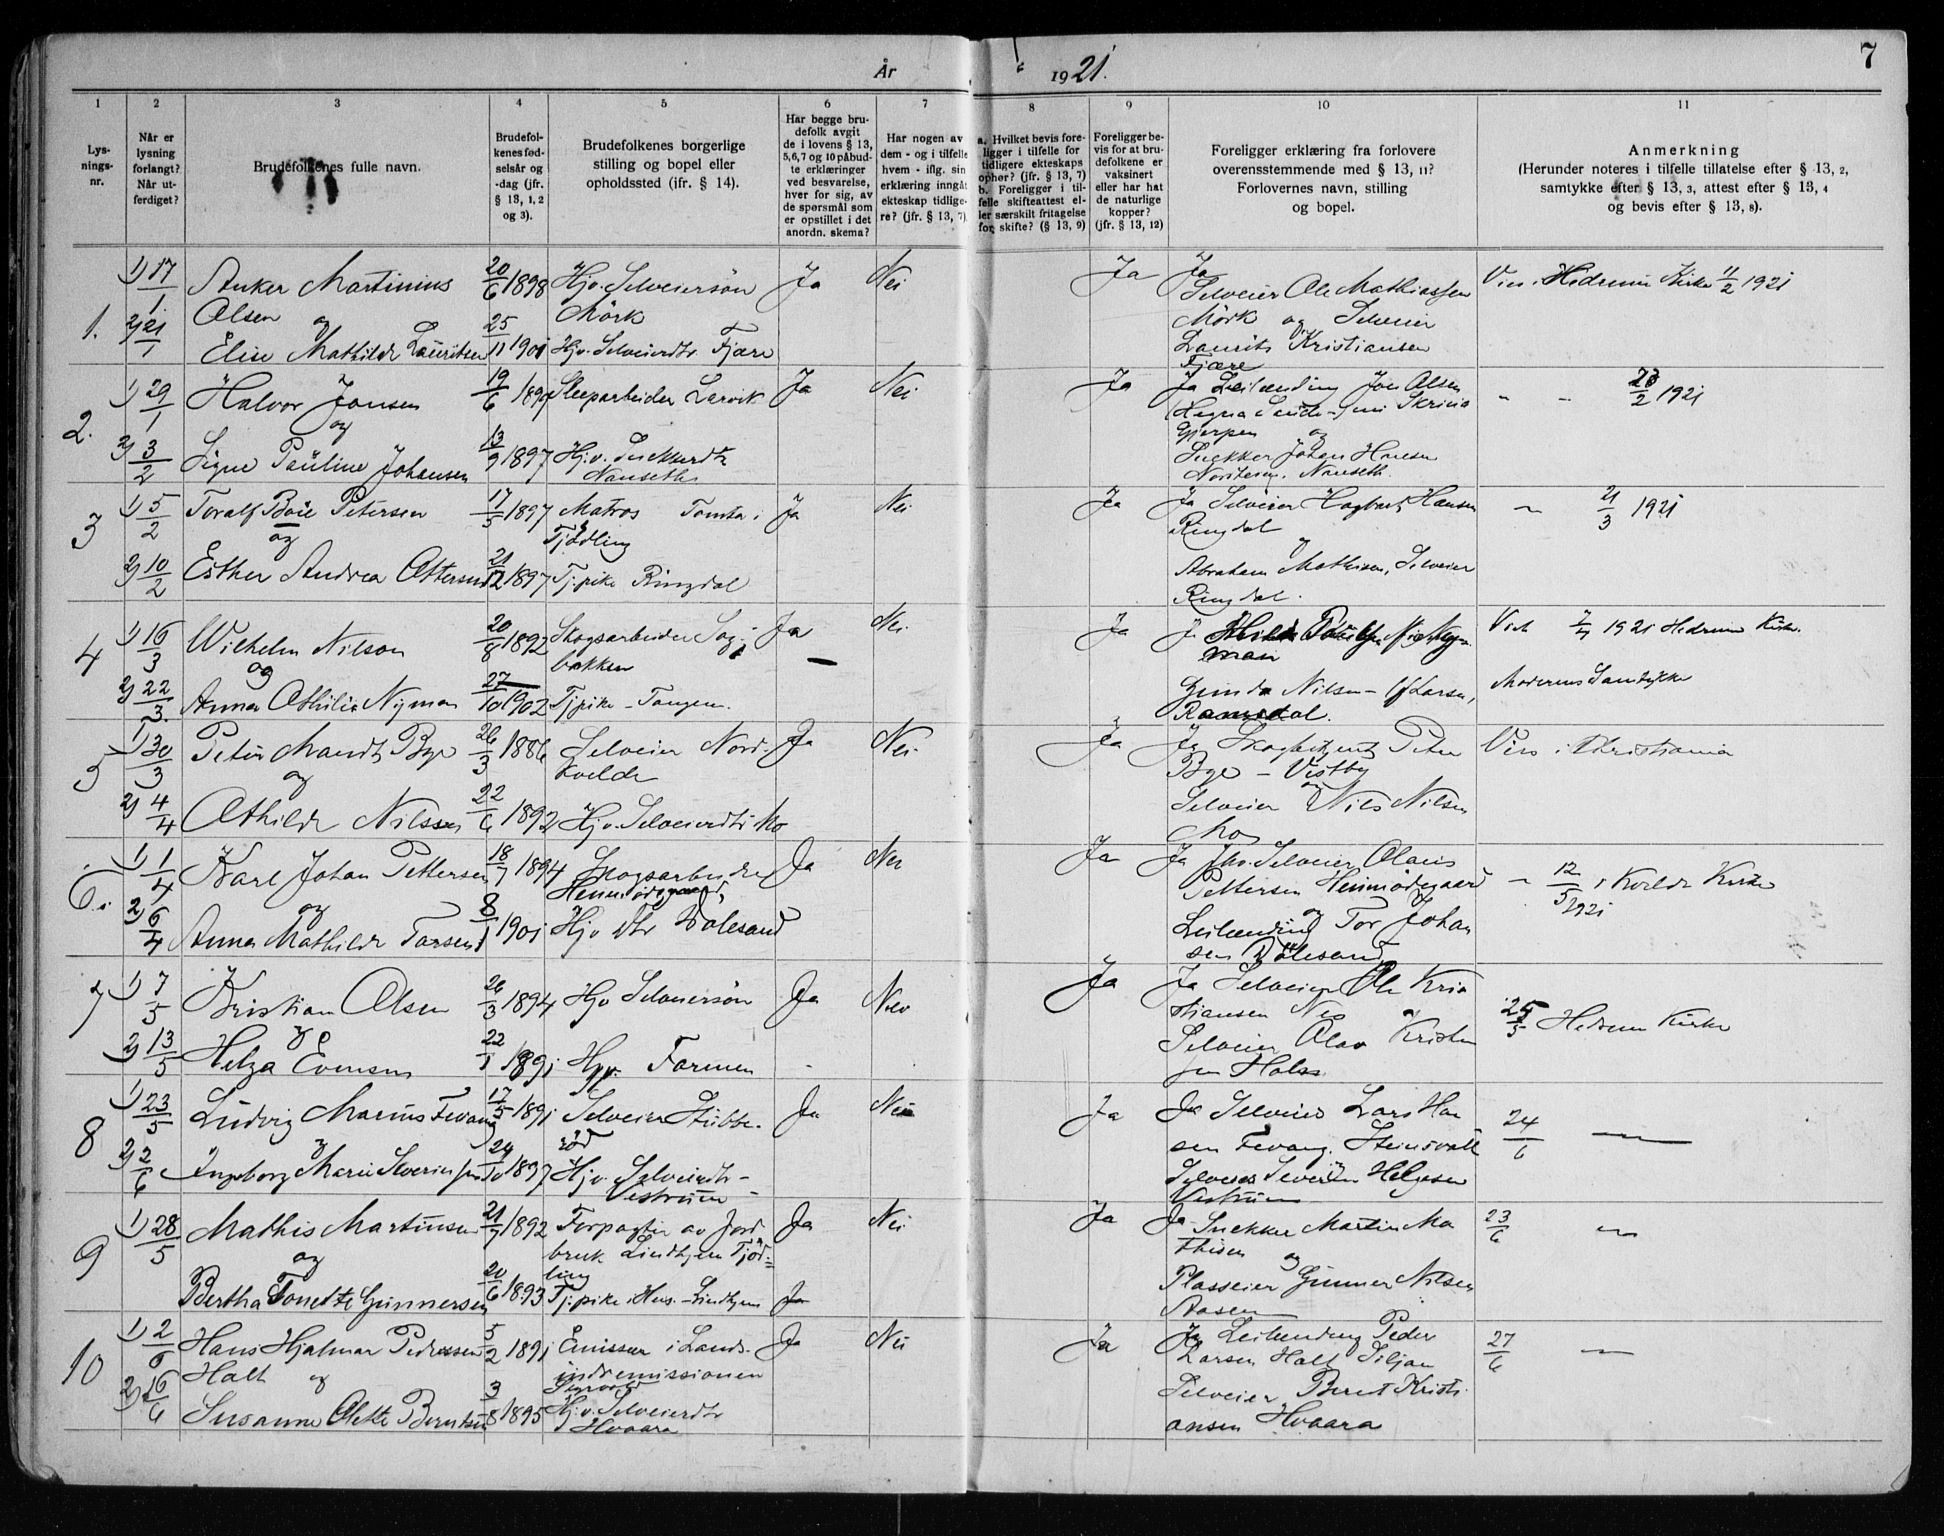 7
År 1921.
1
2
3
4
5
6
7
8
9
10
11
Lys-
nings-
nr.
Når er
lysning
forlangt?
Når ut-
ferdiget?
Brudefolkenes fulle navn.
Brudefol-
kenes fød-
selsår og
-dag (jfr.
§ 13, 1, 2
og 3).
Brudefolkenes borgerlige
stilling og bopel eller
opholdssted (jfr. § 14).
Har begge bru-
defolk avgit
de i lovens § 13,
5,6,7 og 10 påbud-
te erklæringer
ved besvarelse,
hver for sig, av
de spørsmål som
er opstillet i det
anordn. skema?
Har nogen av
dem - og i tilfelle
hvem - iflg. sin
erklæring inngåt
ekteskap tidlige-
re? (jfr. § 13, 7)
a. Hvilket bevis fore-
ligger i tilfelle for
tidligere ekteskaps
ophør? (jfr. § 13, 7)
b. Foreligger i til-
felle skifteattest el-
ler særskilt fritagelse
for skifte? (§ 13, 9)
Foreligger be-
vis for at bru-
defolkene er
vaksinert
eller har hat
de naturlige
kopper?
(jfr. § 13, 12)
Foreligger erklæring fra forlovere
overensstemmende med § 13, 11?
Forlovernes navn, stilling
og bopel.
Anmerkning
(Herunder noteres i tilfelle tillatelse efter § 13, 2,
samtykke efter § 13, 3, attest efter § 13, 4
og bevis efter § 13, 8).
1.
1) 17/1
2) 21/1
Anker Martinius
Olsen og
Elise Mathilde Lauritsen
20/6 1898
25/11 1901
Hjv. Selveiersøn
Mörk
Hjv. Selveierdtr. Fjære
Ja
Nei
Ja
Ja
Selveier Ole Mathiassen
Mörk og Selveier
Laurits Kristiansen
Fjære
Vies i Hedrum Kirke 11/2 1921
2.
1) 29/1
2) 3/2
Halvor Jonsen
og
Signe Pauline Johansen
19/6
13/9 1897
Sliperarbeider Larvik
Hjv. Snekkerdtr
Nanseth
Ja
Nei
Ja
Ja Leilending Jon Olsen
Gjerpen og
Snekker Johan Hansen
Nordheim. Nanseth.
" - 23/2 1921
3
1) 5/2
2) 10/2
Toralf Boie Petersen
og
Esther Andrea Ottersen
17/5 1897
21/12 1897
Matros Tomta i
Tjødling
Tj. pike Ringdal
Ja
Nei
Ja
Ja Selveier Hagbart Hansen
Ringdal
og
Abraham Mathisen, Selveier
Ringdal.
" 21/3 1921
4
1) 16/3
2) 22/3
Wilhelm Nilson
og
Anna Othilie Nyman
20/8 1892
27/10 1902
Skogsarbeider Sag-
bakken
Tj pike - Tangen.
Ja
Nei.
Ja
man
Gunda Nilsen - Larsen,
Ramsdal.
Viet 7/4 1921 Hedrum Kirke.
Moderens Samtykke
5
1) 30/3
2) 4/4
Peter Mandt Bye
og
Othilde Nilsen
26/3 1886
22/6 1892
Selveier Nord-
kvelde
Hjv. Selveierdtr Mo
Ja
Nei
Ja
Ja Skogbetjent Peter
Bye - Vestby
og
Selveier Nils Nilsen
Mo
Vies i Kristiania
6.
1) 1/4
2) 6/4
Karl Johan Pettersen
og
Anna Mathilde Torsen
18/7 1894
8/1 1901
Skogsarbeider
Heimiødegaard
Hjv dtr Dolesand
Ja
Nei
Ja
Ja fhv. Selveier Olaus
Pettersen Heimiødegaard
og
Leilending Tor Johan
sen Dölesand
" 12/5 i Kvelde Kirke
1921
7
1) 7/5
2) 13/5
Kristian Olsen
og
Helga Evensen
26/3 1894
22/1 1891
Hjv Selveiersøn
Hjv. Farmen
Ja
Nei
Ja
Ja Selveier Ole Kris
tiansen Nes og
Selveier Olav Kristen
sen Hals
25/5 Hedrum Kirke
8
1) 23/5
2) 2/6
Ludvig Marius Fevang
og
Ingeborg Marie Severinsen
17/5 1891
24/10 1897
Selveier Stubbe-
rød
Hjv. Selveierdtr -
Vestrum
Ja
Nei
Ja
Ja Selveier Lars Han
sen Fevang. Steinsvall
Selveier Severin Helgesen
Vestrum
24/6 "
9
1) 28/5
Mathis Martinsen
og
Bertha Tonette Gunnersen
21/7 1892
20/6 1893
Forpagter av Jord
bruk Lindhjem Tjød-
ling
Tj. pike i Hus. Lindhjem
Ja
Ja
Nei
Ja
Ja
Snekker Martin Ma
thisen og
Plasseier Gunner Nilsen
Aasen
23/6 "
10
1) 2/6
2) 16/6
Hans Hjalmar Pedersen
Holt og
Susanne Olette Berntsen
5/2 1891
3/8 1895
Emissær i Lands-
indremissionen
Hjv. Selveierdtr
Hvaara
Ja
Nei
Ja
Ja Leilending Peder
Larsen Holt Siljan
Selveier Bernt Kristi-
ansen Hvaara
27/6 "